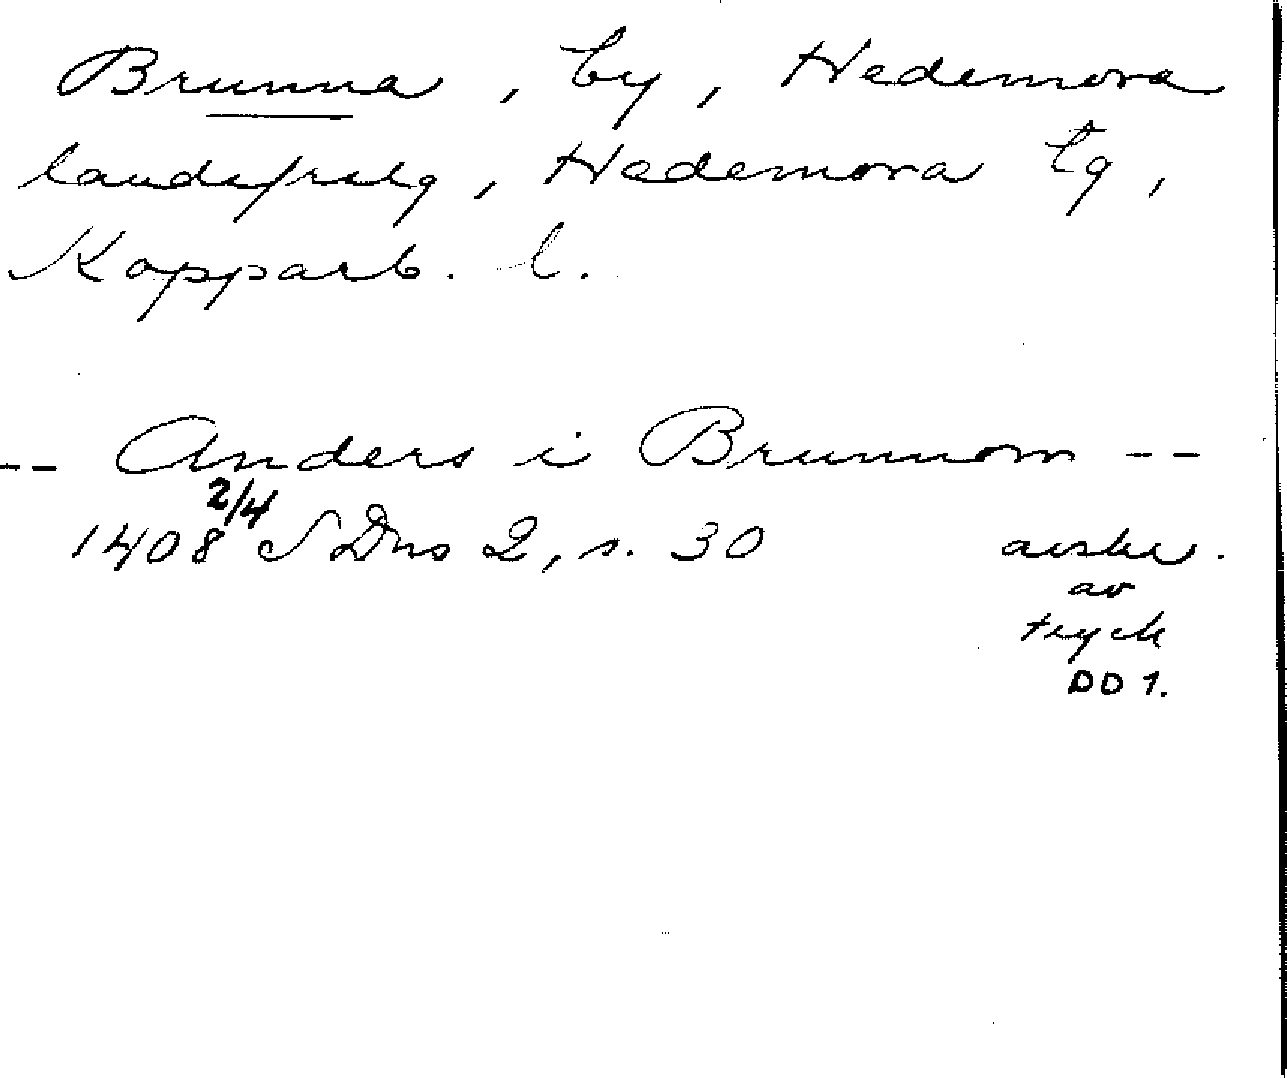 Brunna, by, Hedemora
landsförs, Hedemora tg,
Kopparb. l.
-- Anders i Brunnom --
1408 2/4 SDns 2, s. 30 avskr.
av
tryck
DD 1.